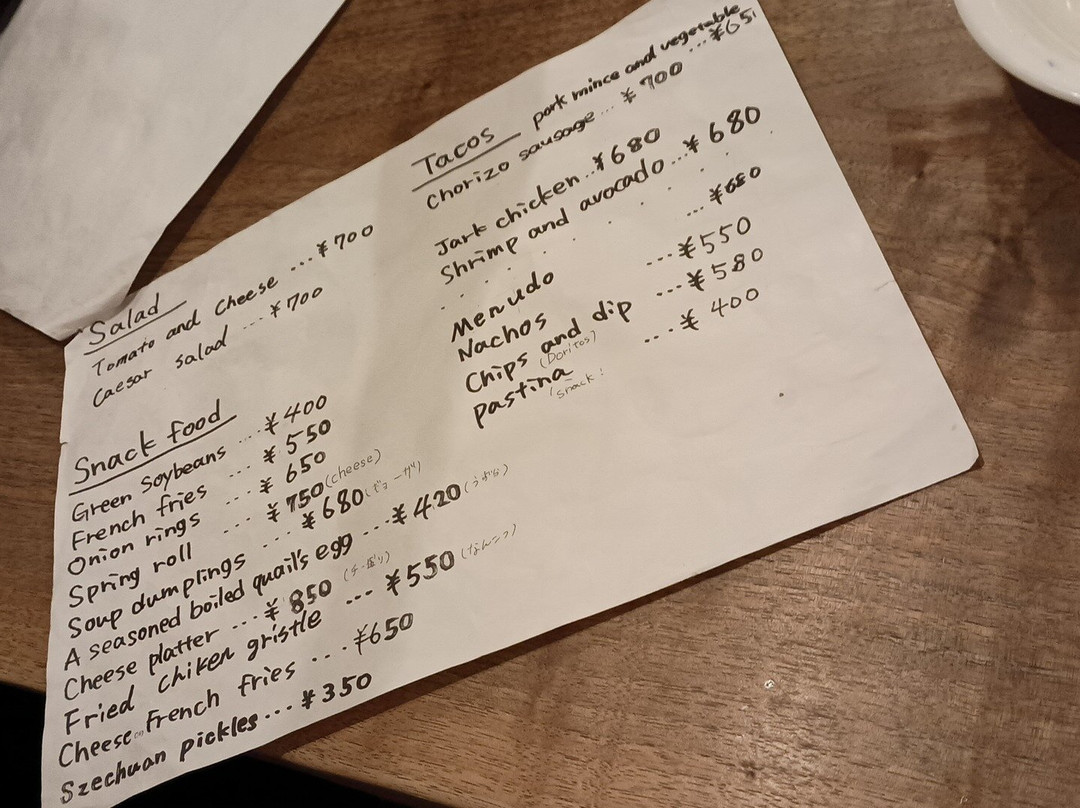 Salad
Tomato and cheese ... ¥700
Caesar salad ... ¥700
Snack food
Green Soybeans ... ¥400
French fries ... ¥550
Onion rings ... ¥650
Spring roll ... ¥750 (cheese)
Soup dumplings ... ¥680
A seasoned boiled quail's egg ... ¥420 (うずら)
Cheese platter ... ¥850 (チー盛り)
Fried chiken gristle ... ¥550 (なんこつ)
Cheese French fries ... ¥650
Szechuan pickles ... ¥350
Tacos
pork mince and vegetable
chorizo sausage ... ¥700
Jark chicken ... ¥680
Shrimp and avocado ... ¥680
Menudo ... ¥680
Nachos ... ¥550
Chips and dip ... ¥580
(Doritos)
pastina ... ¥400
(snack!